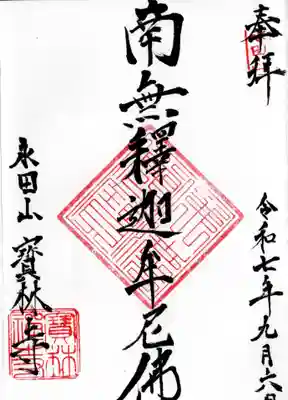 奉拜
令和七年九月六日
南無釋迦牟尼佛
永田山
寶林寺